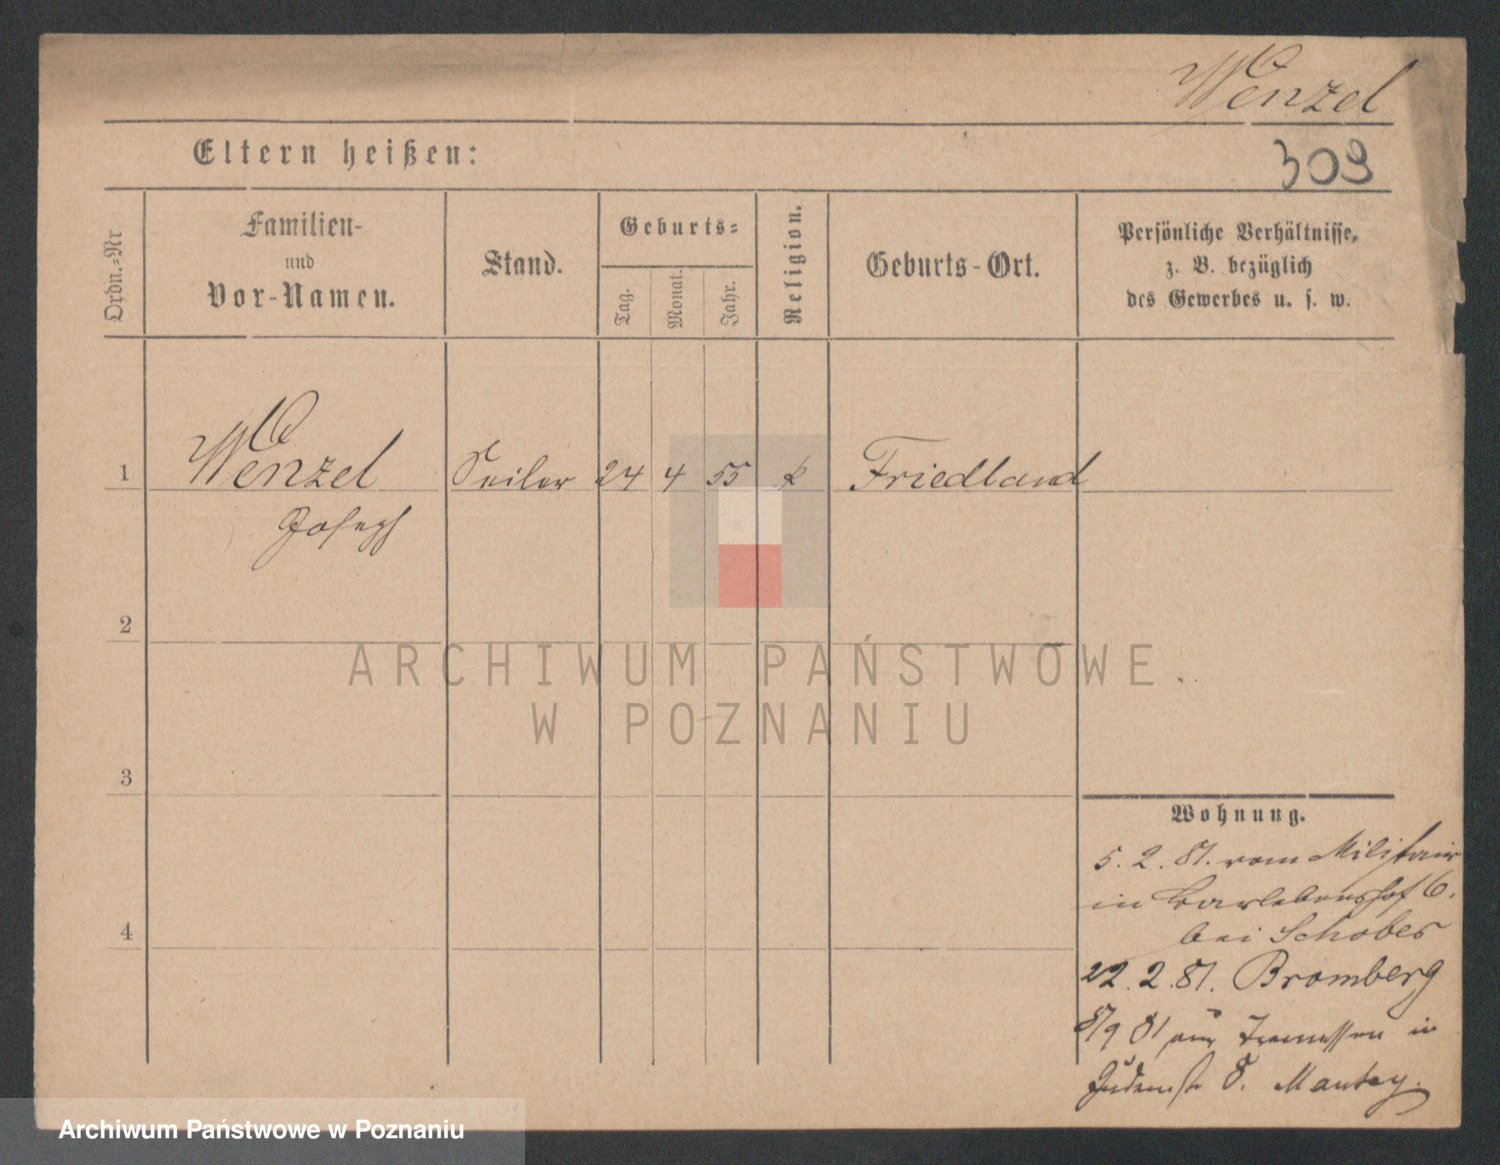 Wenzel
309
Eltern heißen:
Ordn.=Nr
Familien-
und
Vor-Namen.
Stand.
Geburts=
Tag.
Monat.
Jahr.
Religion.
Geburts-Ort.
Persönliche Verhältnisse,
z. B. bezüglich
des Gewerbes u. s. w.
1 Wenzel Seiler 24 4 55 k Friedland
Joseph
2
3
4
Wohnung.
5. 2. 81. vom Militair
in Bartlebenshof 6.
bei Schober
22. 2. 81. Bromberg
8/9 81 aus Tremessen in
Judenstr 8. Mantey.
ARCHIWUM PAŃSTWOWE
W POZNANIU
Archiwum Państwowe w Poznaniu